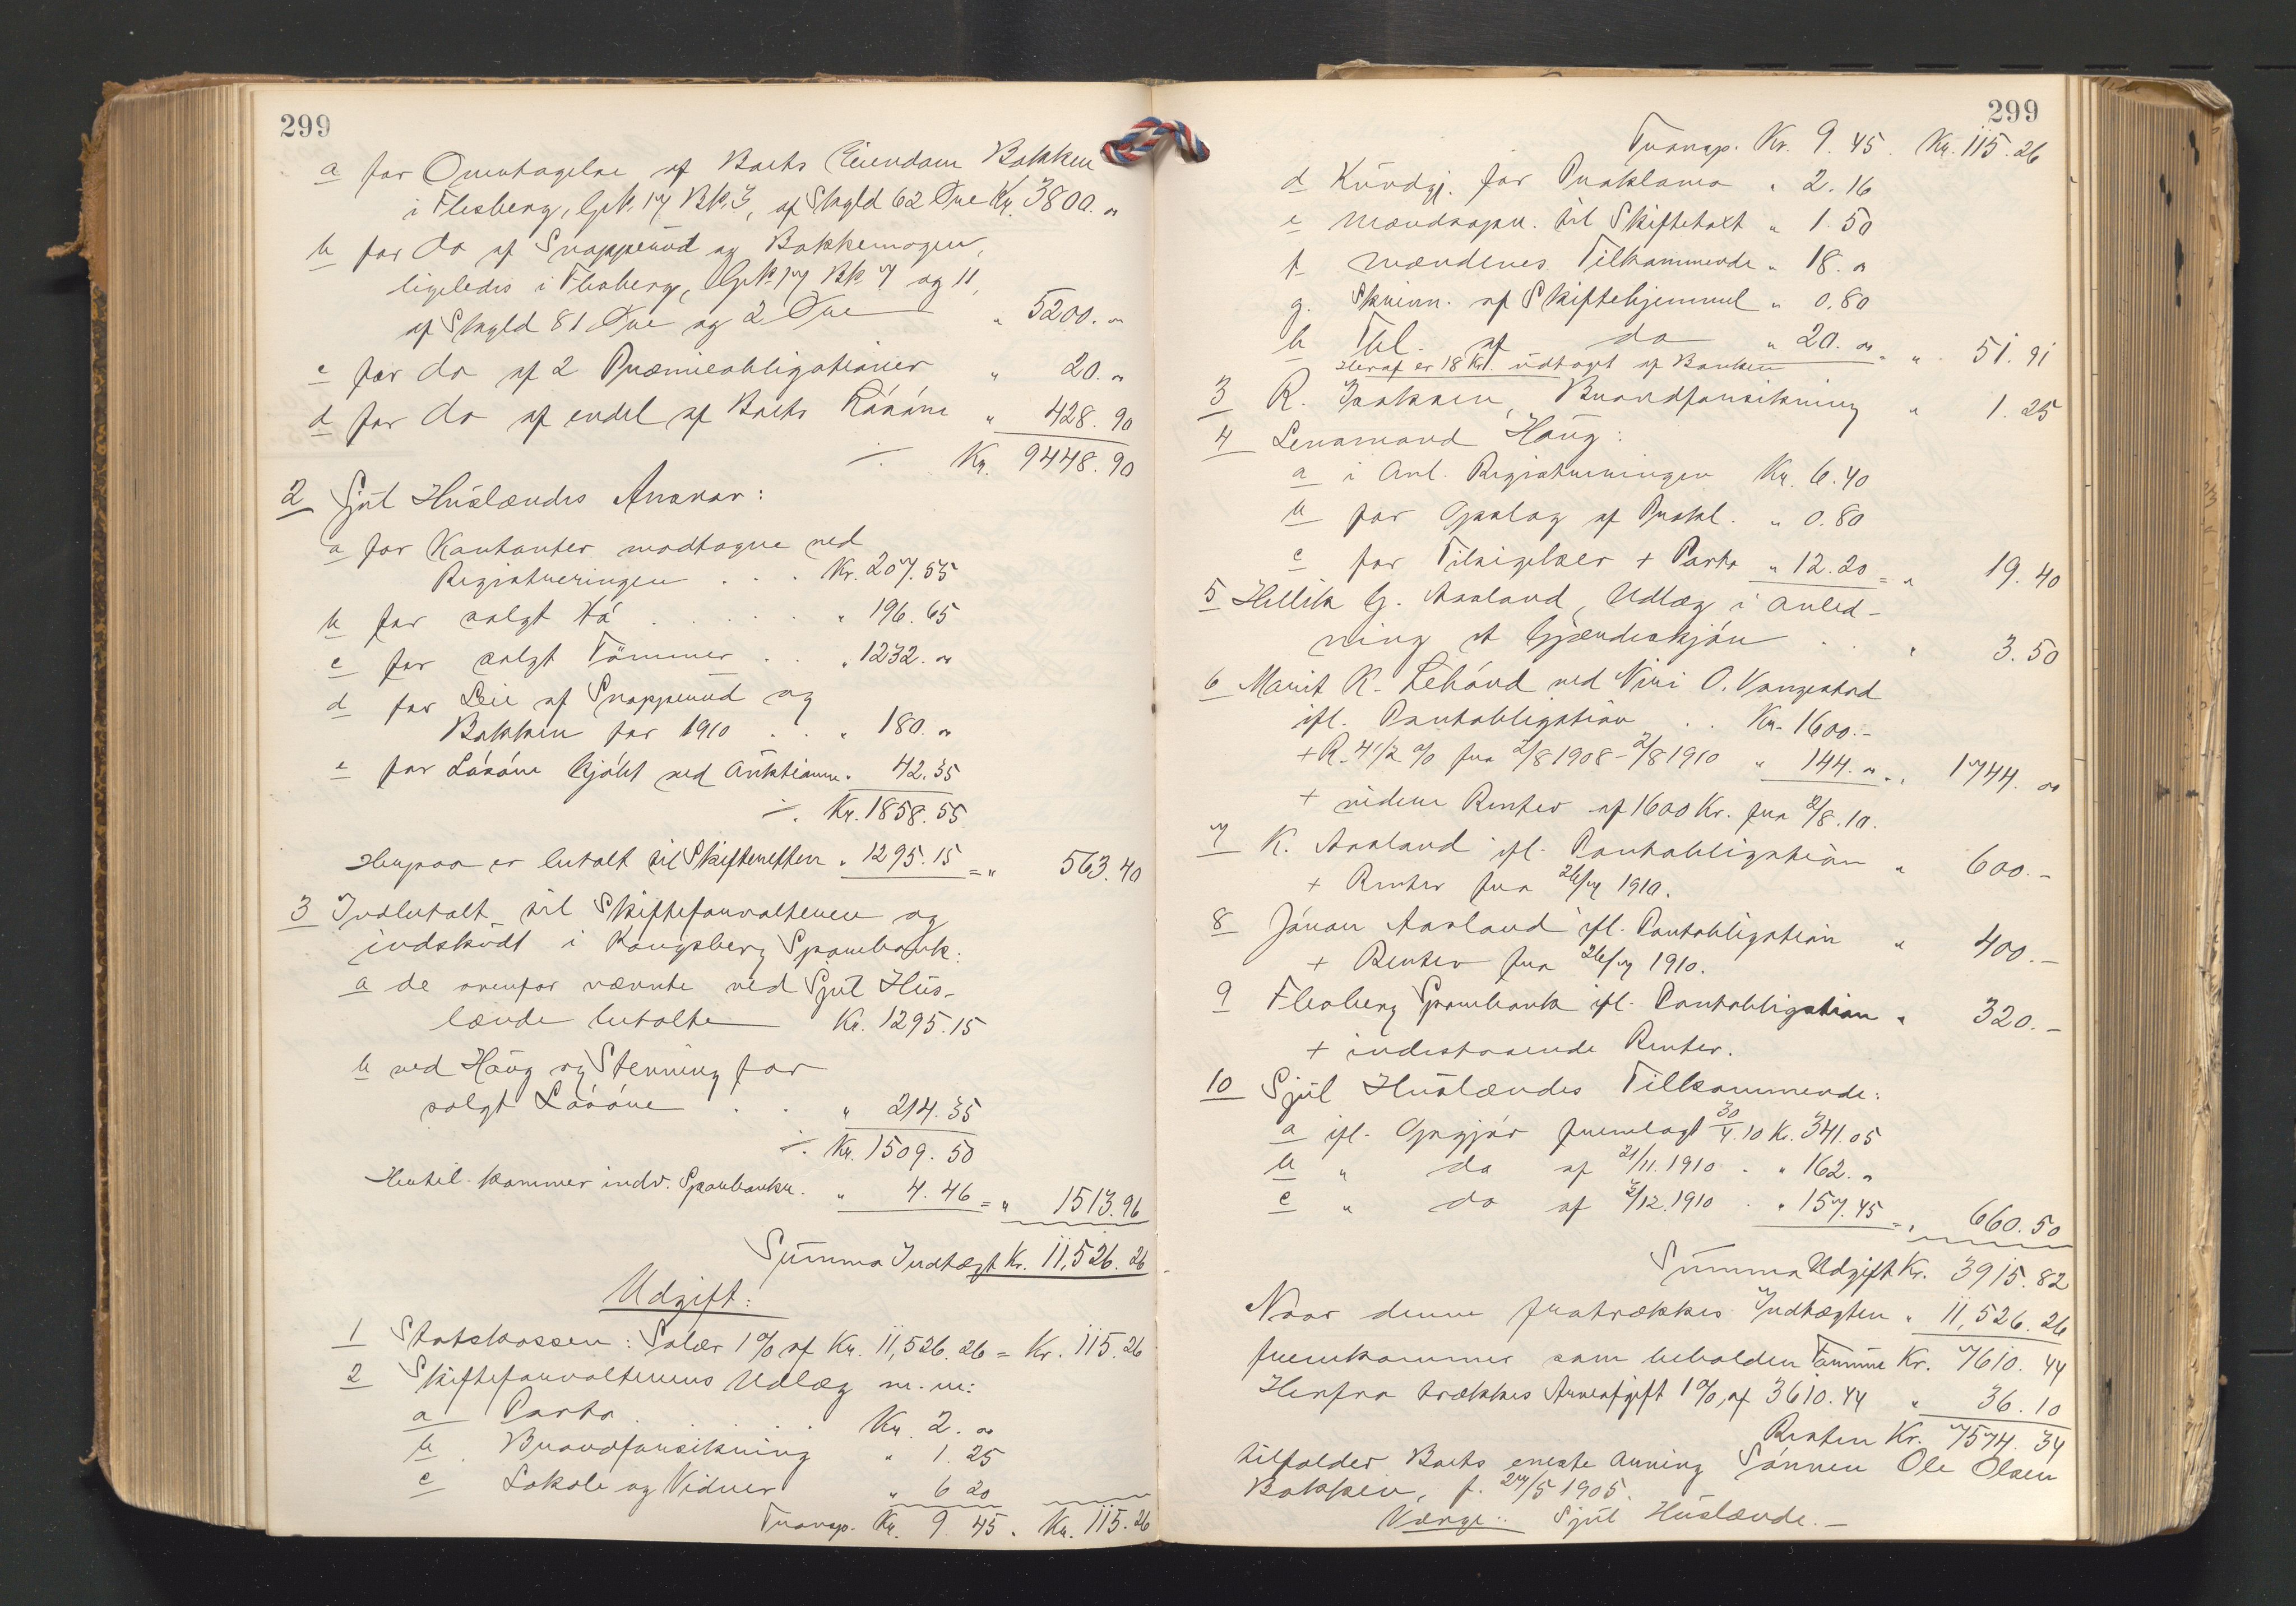 299
a for Overtagelse af Boets Eiendom Bakken
i Flesberg, Gpk. 17 Bk. 3, af Skyld 62 Øre Kr. 3800. "
b for do af Snapperud og Bakkemogen,
ligeledes i Flesberg, Gpk. 17 Bk 7 og 11,
af Skyld 81 Øre og 2 Øre " 5200. "
c for do af 2 Præmieobligationer " 20. "
d for do af endel af Boets Løsøre " 428. 90
÷ Kr. 9448. 90
2 Sjul Huslændes Ansvar:
a for Kontanter modtagne ved
Registreringen . . . Kr. 207. 55
b for solgt Hø . . . . . . " 196. 65
c for solgt Tømmer . . " 1232. "
d for Leie af Snapperud og
Bakken for 1910 . . . " 180. "
e for Løsøre kjøbt ved Auktionen " 42. 35
÷ Kr. 1858. 55
Herpaa er betalt til Skifteretten " 1295. 15 = " 563. 40
3 Indbetalt til Skifteforvalteren og
indskudt i Kongsberg Sparebank:
a de ovenfor nævnte ved Sjul Hus-
lænde betalte Kr. 1295. 15
b ved Haug og Stenning for
solgt Løsøre . . " 214. 35
÷ Kr. 1509. 50
Hertil kommer indv. Sparebankr. " 4. 46 = " 1513. 96
Summa Indtægt Kr. 11,526. 26
Udgift:
1 Statskassen: Salær 1 % af Kr. 11,526. 26 = Kr. 115. 26
2 Skifteforvalterens Udlæg m. m:
a Porto . . . Kr. 2. "
b . Brandforsikring " 1. 25
c Lokale og Vidner " 6 20
Transp. Kr. 9 45. Kr. 115. 26
299
Transp. Kr. 9. 45. Kr. 115. 26
d Kundgj. for Proklama " 2. 16
e Mændsopn. til Skiftetaxt " 1. 50
f Mændenes Tilkommende " 18. "
g. Skrivn. af Skiftehjemmel " 0. 80
h Thl. af do " 20. " = " 51. 91
Heraf er 18 Kr. udtaget af Banken
3 R. Isaksen, Brandforsikring " 1. 25
4 Lensmand Haug:
a i Anl. Registreringen Kr. 6. 40
b for Opslag af Prokl. " 0. 80
c for Tilsigelser + Porto " 12. 20 = " 19. 40
5 Hellik G. Aasland, Udlæg i Anled-
ning et Gjændeskjøn . . " 3. 50
6 Marit K. Lehovd ved Niri O. Vangestad
ifl. Pantobligation . . Kr. 1600. -
+ R. 4 1/2 % fra 2/8 1908 - 2/8 1910 " 144. " = " 1744. "
+ videre Renter af 1600 Kr. fra 2/8. 10.
7 K. Aasland ifl. Pantobligation " 600. -
+ Renter fra 26/7 1910.
8 Jøran Aasland ifl. Pantobligation " 400. -
+ Renter fra 26/7 1910.
9 Flesberg Sparebank ifl. Pantobligation " 320. -
+ indestaaende Renter.
10 Sjul Huslændes Tilkommende:
a ifl. Opgjør fremlagt 30/4. 10 Kr. 341. 05
b " do af 21/11. 1910 . " 162. "
c " do af 2/12. 1910 . " 157. 45 = " 660. 50
Summa Udgift Kr. 3915. 82
Naar denne fratrækkes Indtægten " 11,526. 26
fremkommer som beholden Formue Kr. 7610. 44
Herfra trækkes Arveafgift 1 % af 3610. 44 " 36. 10
Resten Kr. 7574. 34
tilfalder Boets eneste Arving Sønnen Ole Olsen
Bakken, f. 27/5 1905.
Værge: Sjul Huslænde. -